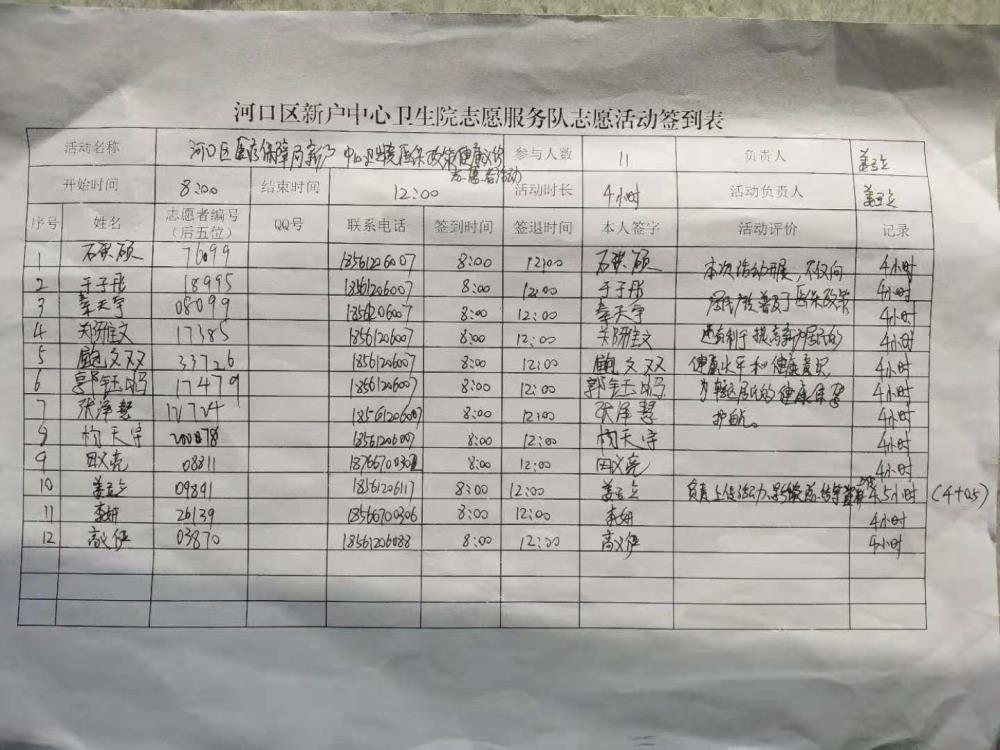 河口区新户中心卫生院志愿服务队志愿活动签到表
活动名称 河口区医疗保障局新户中心卫生院医保政策健康义诊志愿者活动 参与人数 11 负责人
开始时间 8:00 结束时间 12:00 活动时长 4小时 活动负责人
序号 姓名 志愿者编号（后五位） QQ号 联系电话 签到时间 签退时间 本人签字 活动评价 记录
1 硕 76099 18561206007 8:00 12:00 硕 本次活动开展，不仅向 4小时
2 于子彤 18995 18561206007 8:00 12:00 于子彤 居民普及了医保政策 4小时
3 秦天宇 08099 18561206007 8:00 12:00 秦天宇 4小时
4 郑雅文 17385 18561206007 8:00 12:00 郑雅文 还有利于提高新户居民的 4小时
5 鲍文双 33726 18561206007 8:00 12:00 鲍文双 健康水平和健康意识 4小时
6 郭钰 17479 18561206007 8:00 12:00 郭钰 为辖区居民的健康保驾 4小时
7 张泽慧 18561206007 8:00 12:00 张泽慧 护航。 4小时
8 天宇 18561206007 8:00 12:00 天宇 4小时
9 田义亮 08811 8:00 12:00 田义亮 4小时
10 09891 18561206117 8:00 12:00 负责上传活动 4.5小时 (4+0.5)
11 李妍 26139 18566700306 8:00 12:00 李妍 4小时
12 高义 03870 18561206088 8:00 12:00 高义 4小时